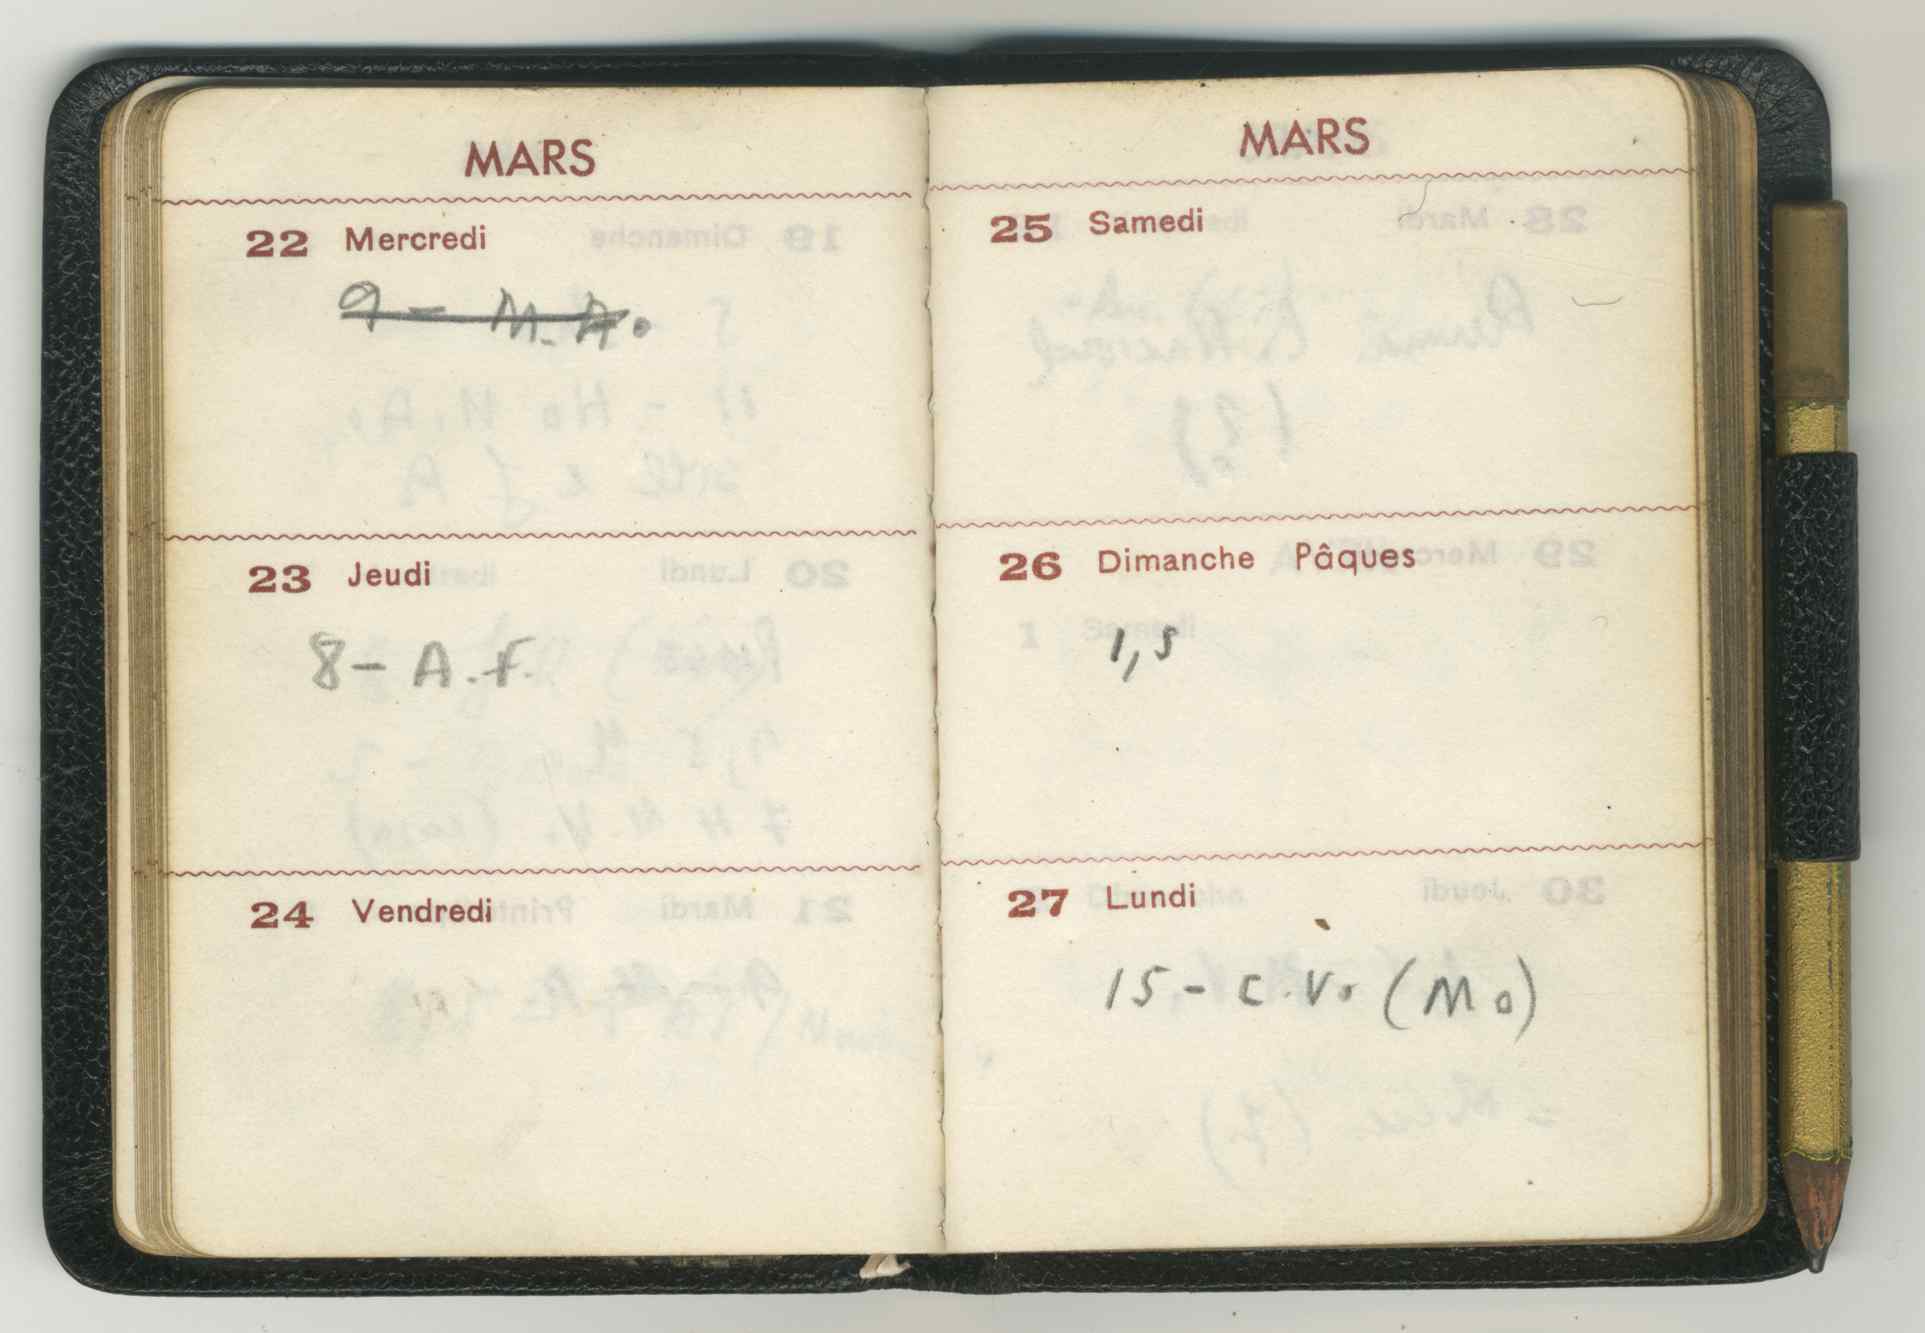 MARS
22 Mercredi
9 - M.A.
23 Jeudi
8 - A.F.
24 Vendredi
MARS
25 Samedi
26 Dimanche Pâques
1,5
27 Lundi
15 - C.V. (Mo)